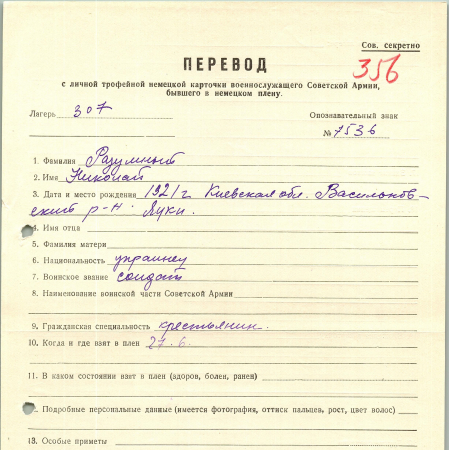 Сов. секретно
356
ПЕРЕВОД
с личной трофейной немецкой карточки военнослужащего Советской Армии,
бывшего в немецком плену.
Лагерь 307
Опознавательный знак
№ 7536
1. Фамилия Разумный
2. Имя Николай
3. Дата и место рождения 1921 г Киевская обл. Васильков-
ский р-н. Луки.
4. Имя отца
5. Фамилия матери
6. Национальность украинец
7. Воинское звание солдат
8. Наименование воинской части Советской Армии
9. Гражданская специальность крестьянин.
10. Когда и где взят в плен 27.6.
11. В каком состоянии взят в плен (здоров, болен, ранен)
2. Подробные персональные данные (имеется фотография, оттиск пальцев, рост, цвет волос)
13. Особые приметы